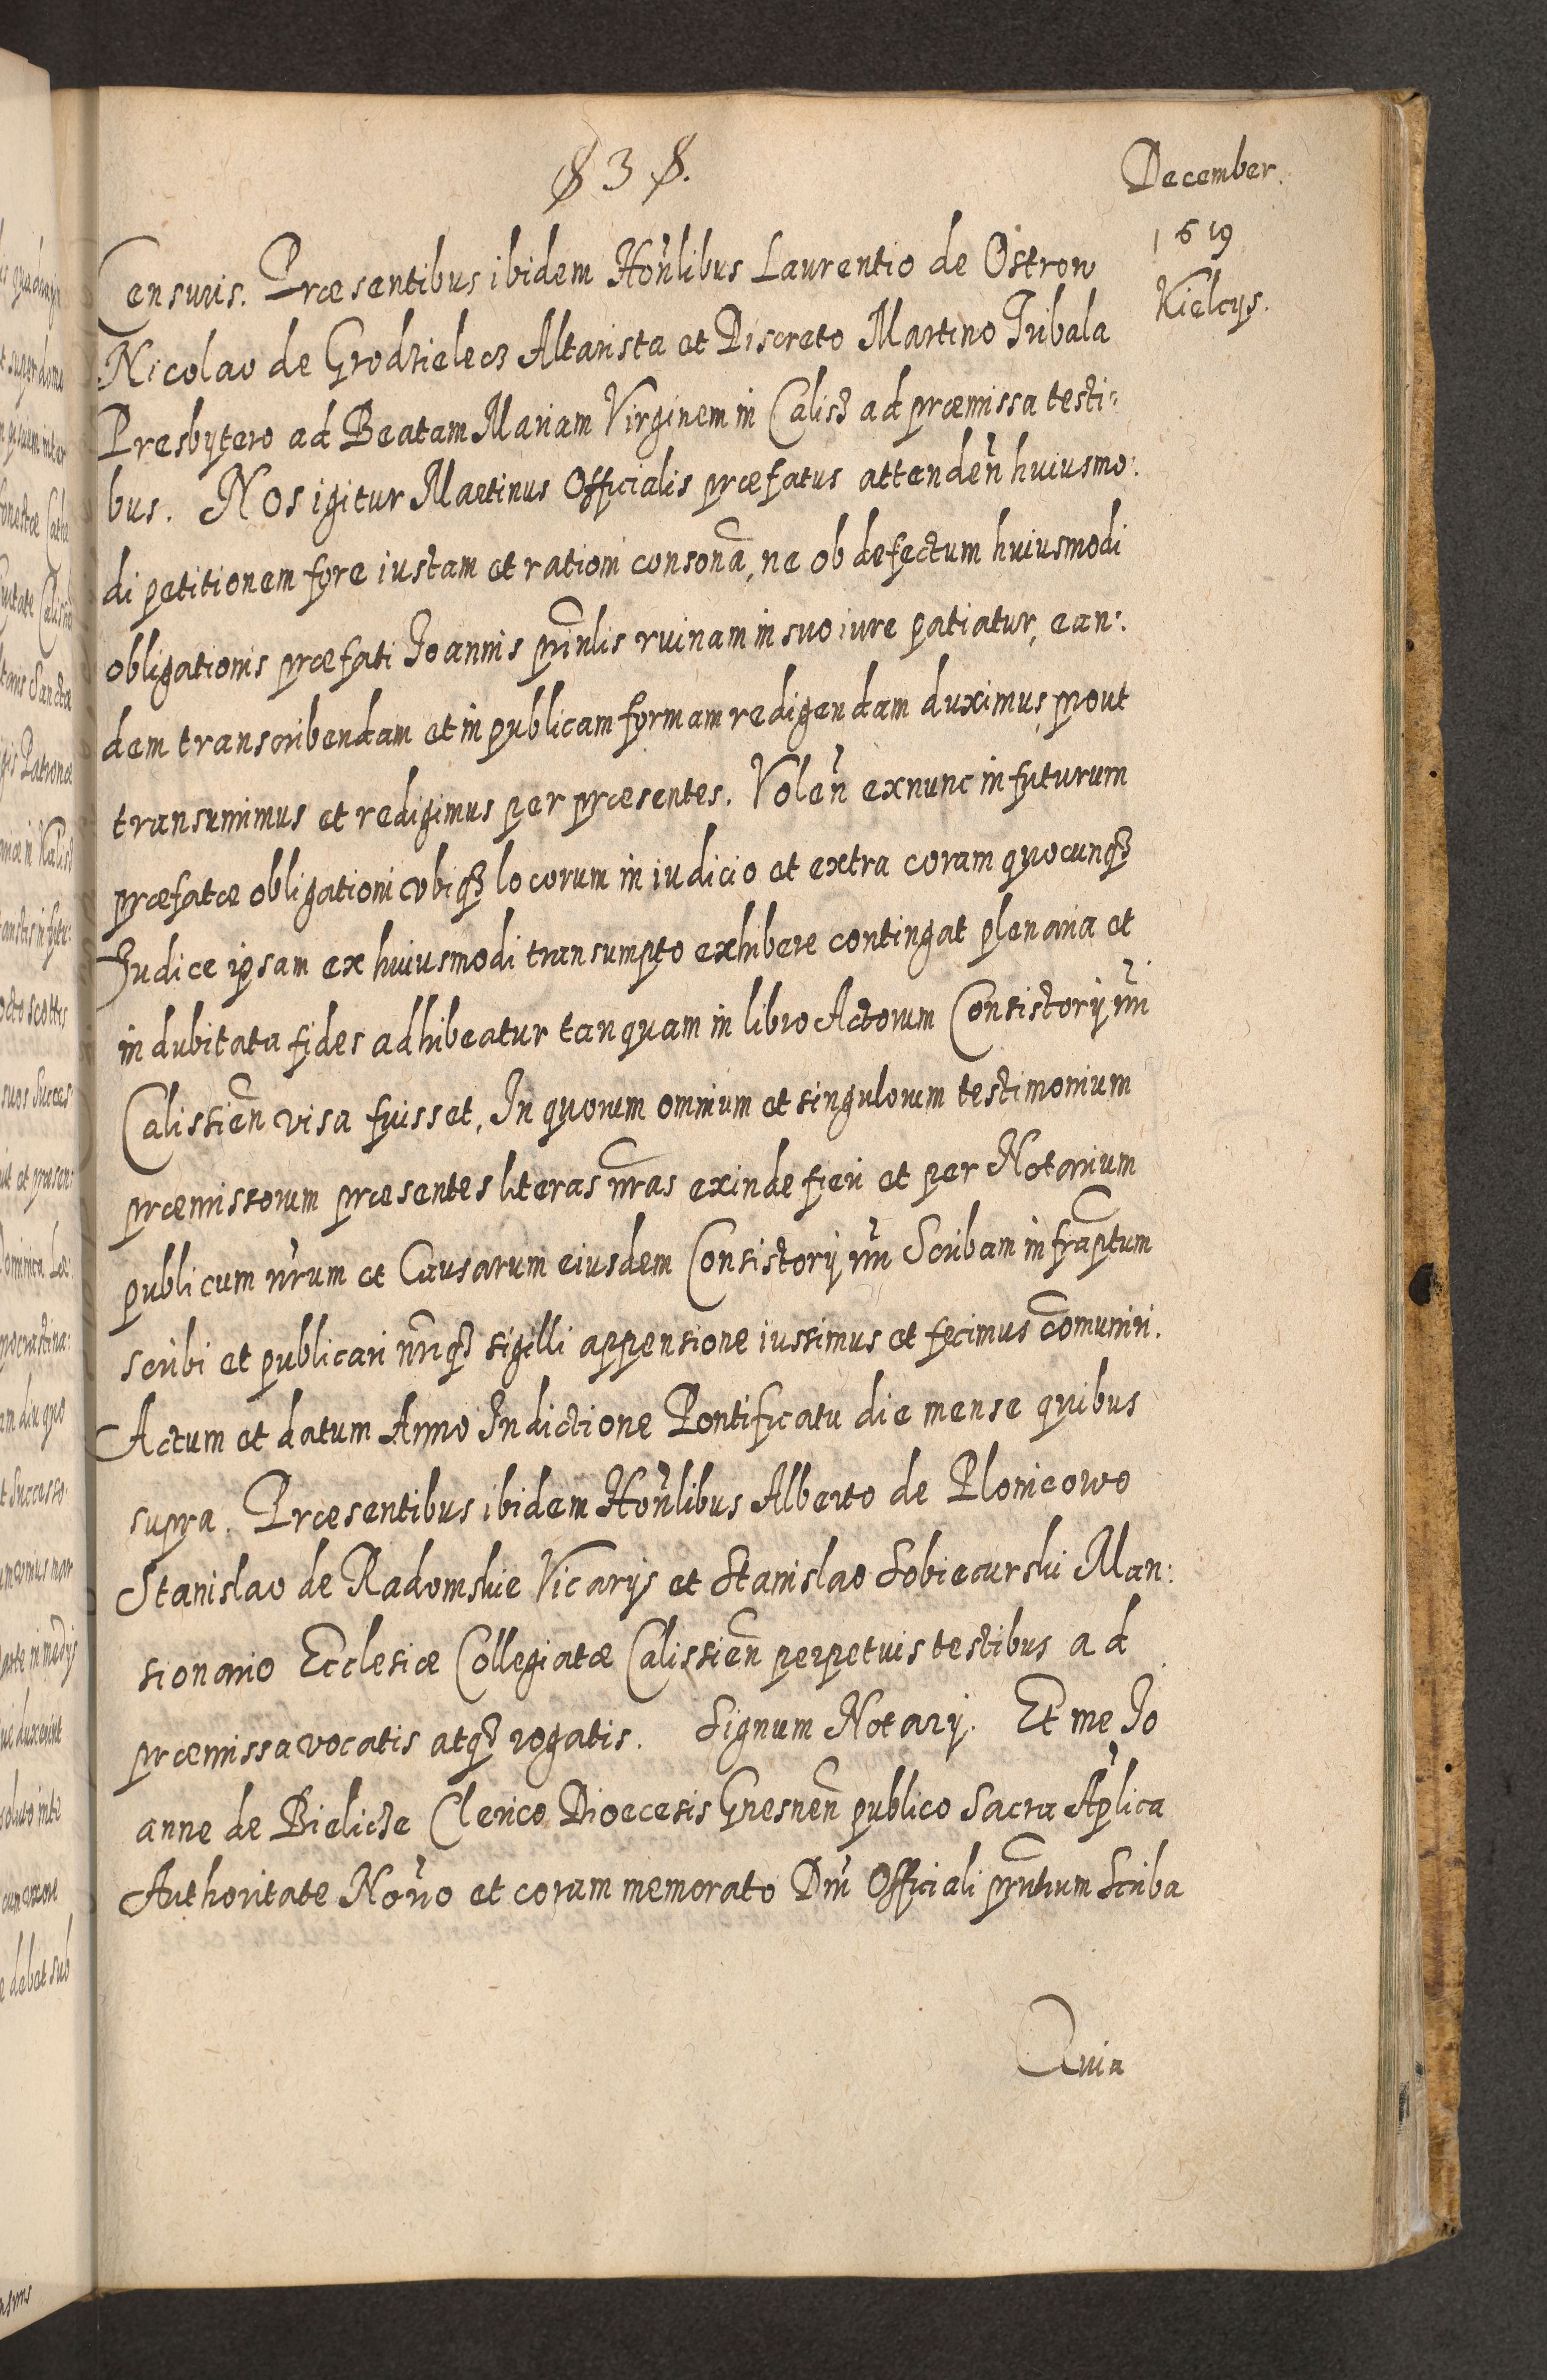 838.
December.
1619
Kielcys.
Censuris. Præsentibus ibidem Hon̄libus Laurentio de Ostrow
Nicolao de Grodzielecz Altarista et Discreto Martino Tribala
Presbytero ad Beatam Mariam Virginem in Calisz ad præmissa testi:
bus. Nos igitur Martinus Officialis præfatus attendeñ huiusmo:
di petitionem fore iustam et rationi consonã, ne ob defectum huiusmodi
obligationis præfati Joannis prin̄lis ruinam in suo iure patiatur, ean:
dem transcribendam et in publicam formam redigendam duximus, prout
transumimus et redigimus per præsentes. Voleñ exnunc in futurum
præfatæ obligationi vbiqȝ locorum in iudicio et extra coram quocunqȝ
Judice ipsam ex huiusmodi transumpto exhibere contingat plenaria et
indubitata fides adhibeatur tanquam in libro Actorum Consistorij nr̄i
Calissieñ visa fuisset, In quorum omnium et singulorum testimonium
præmissorum præsentes literas nr̄as exinde fieri et per Notarium
publicum nr̄um et Causarum eiusdem Consistorij nr̄i Scribam infrap̄tum
scribi et publicari nr̄iqȝ sigilli appensione iussimus et fecimus com̄uniri.
Actum et datum Anno Indictione Pontificatu die mense quibus
supra. Præsentibus ibidem Hon̄libus Alberto de Plonicowo
Stanislao de Radomskie Vicarijs et Stanislao Sobiecurski Man:
sionario Ecclesiæ Collegiatæ Calissieñ perpetuis testibus ad
præmissa vocatis atqȝ rogatis. Signum Notarij. Et me Jo
anne de Bielicze Clerico Dioecesis Gnesneñ publico Sacra Ap̄lica
Authoritate Nor̄io et coram memorato Dn̄i Officiali prn̄tium Scriba
Quia